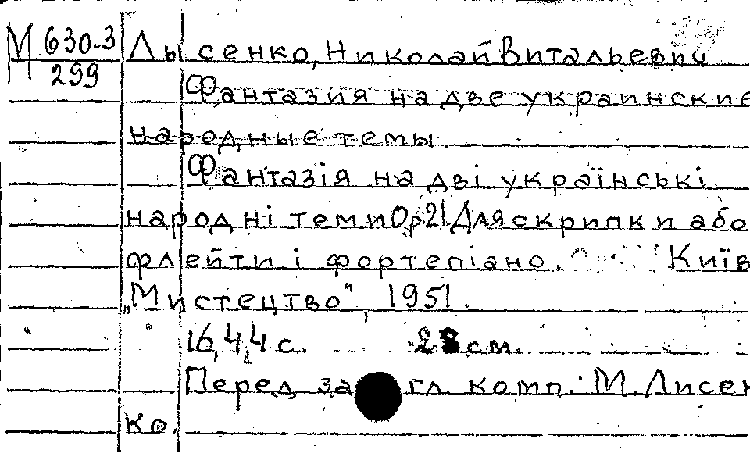 М 630-3
299
Лысенко, Николай Витальевич
Фантазия на две украинские
народные темы
Фантазія на дві українські
народні теми Ор 21 Для скрипки або
флейти і фортепіано. Київ
„Мистецтво" 1951.
16, 4, 4 с. см.
Перед гл комп. М. Лисен
ко.